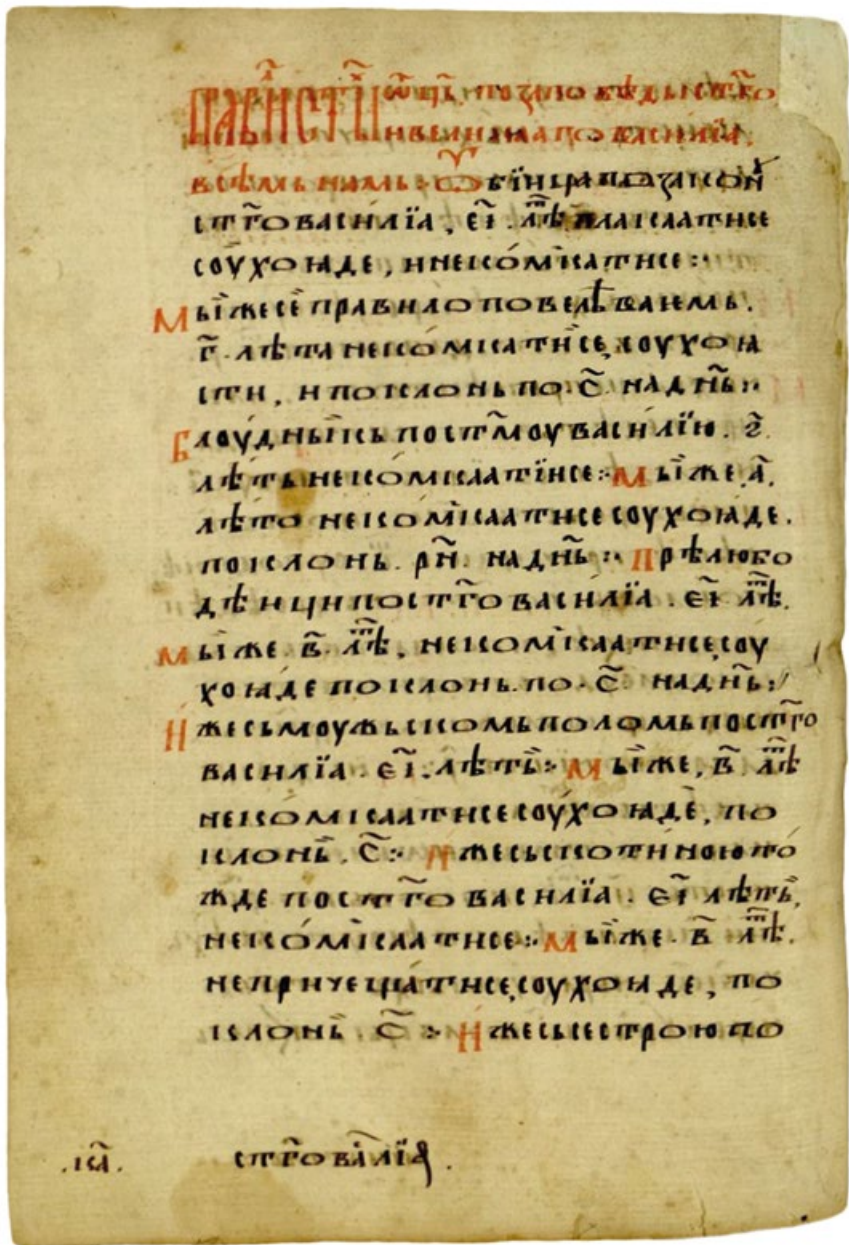 ст҃го василїа, е҃і. лѣ плакатисе
соухоꙗде, и некомкатисе :·
Мыи же сѐ правило повелѣваемь.
г҃. лѣта некомкатисе, соухоꙗ
сти, и поклонь по. с҃. на дн҃ь :·
Блоудныкь по ст҃моу василїю. з҃.
лѣть некомкатїисе :· Мыи же, а҃,
лѣто некомкаатисе соухоꙗде.
поклонь. рн҃. на дн҃ь :· Прѣлюбо
дѣици по ст҃го василїа. е҃і лѣ.
Мыи же. в҃. лѣ, некомкаатисе, соу
хоꙗде поклонь. по. с҃. на дн҃ь :·
Иже сь моужьскомь поломь по ст҃го
василїа. е҃і. лѣть :· Мыи же, в҃ лѣ
некомкаатисе соухоꙗде, по
клонь. с҃ :· Иже сь скотиною то
жде по ст҃го василїа. е҃і лѣть,
некомкаатисе :· Мыи же. в҃ лѣ.
непричещатисе, соухоꙗде, по
клонь. с҃ :· Иже сь сестрою по
.к҃а. ст҃го валїа.